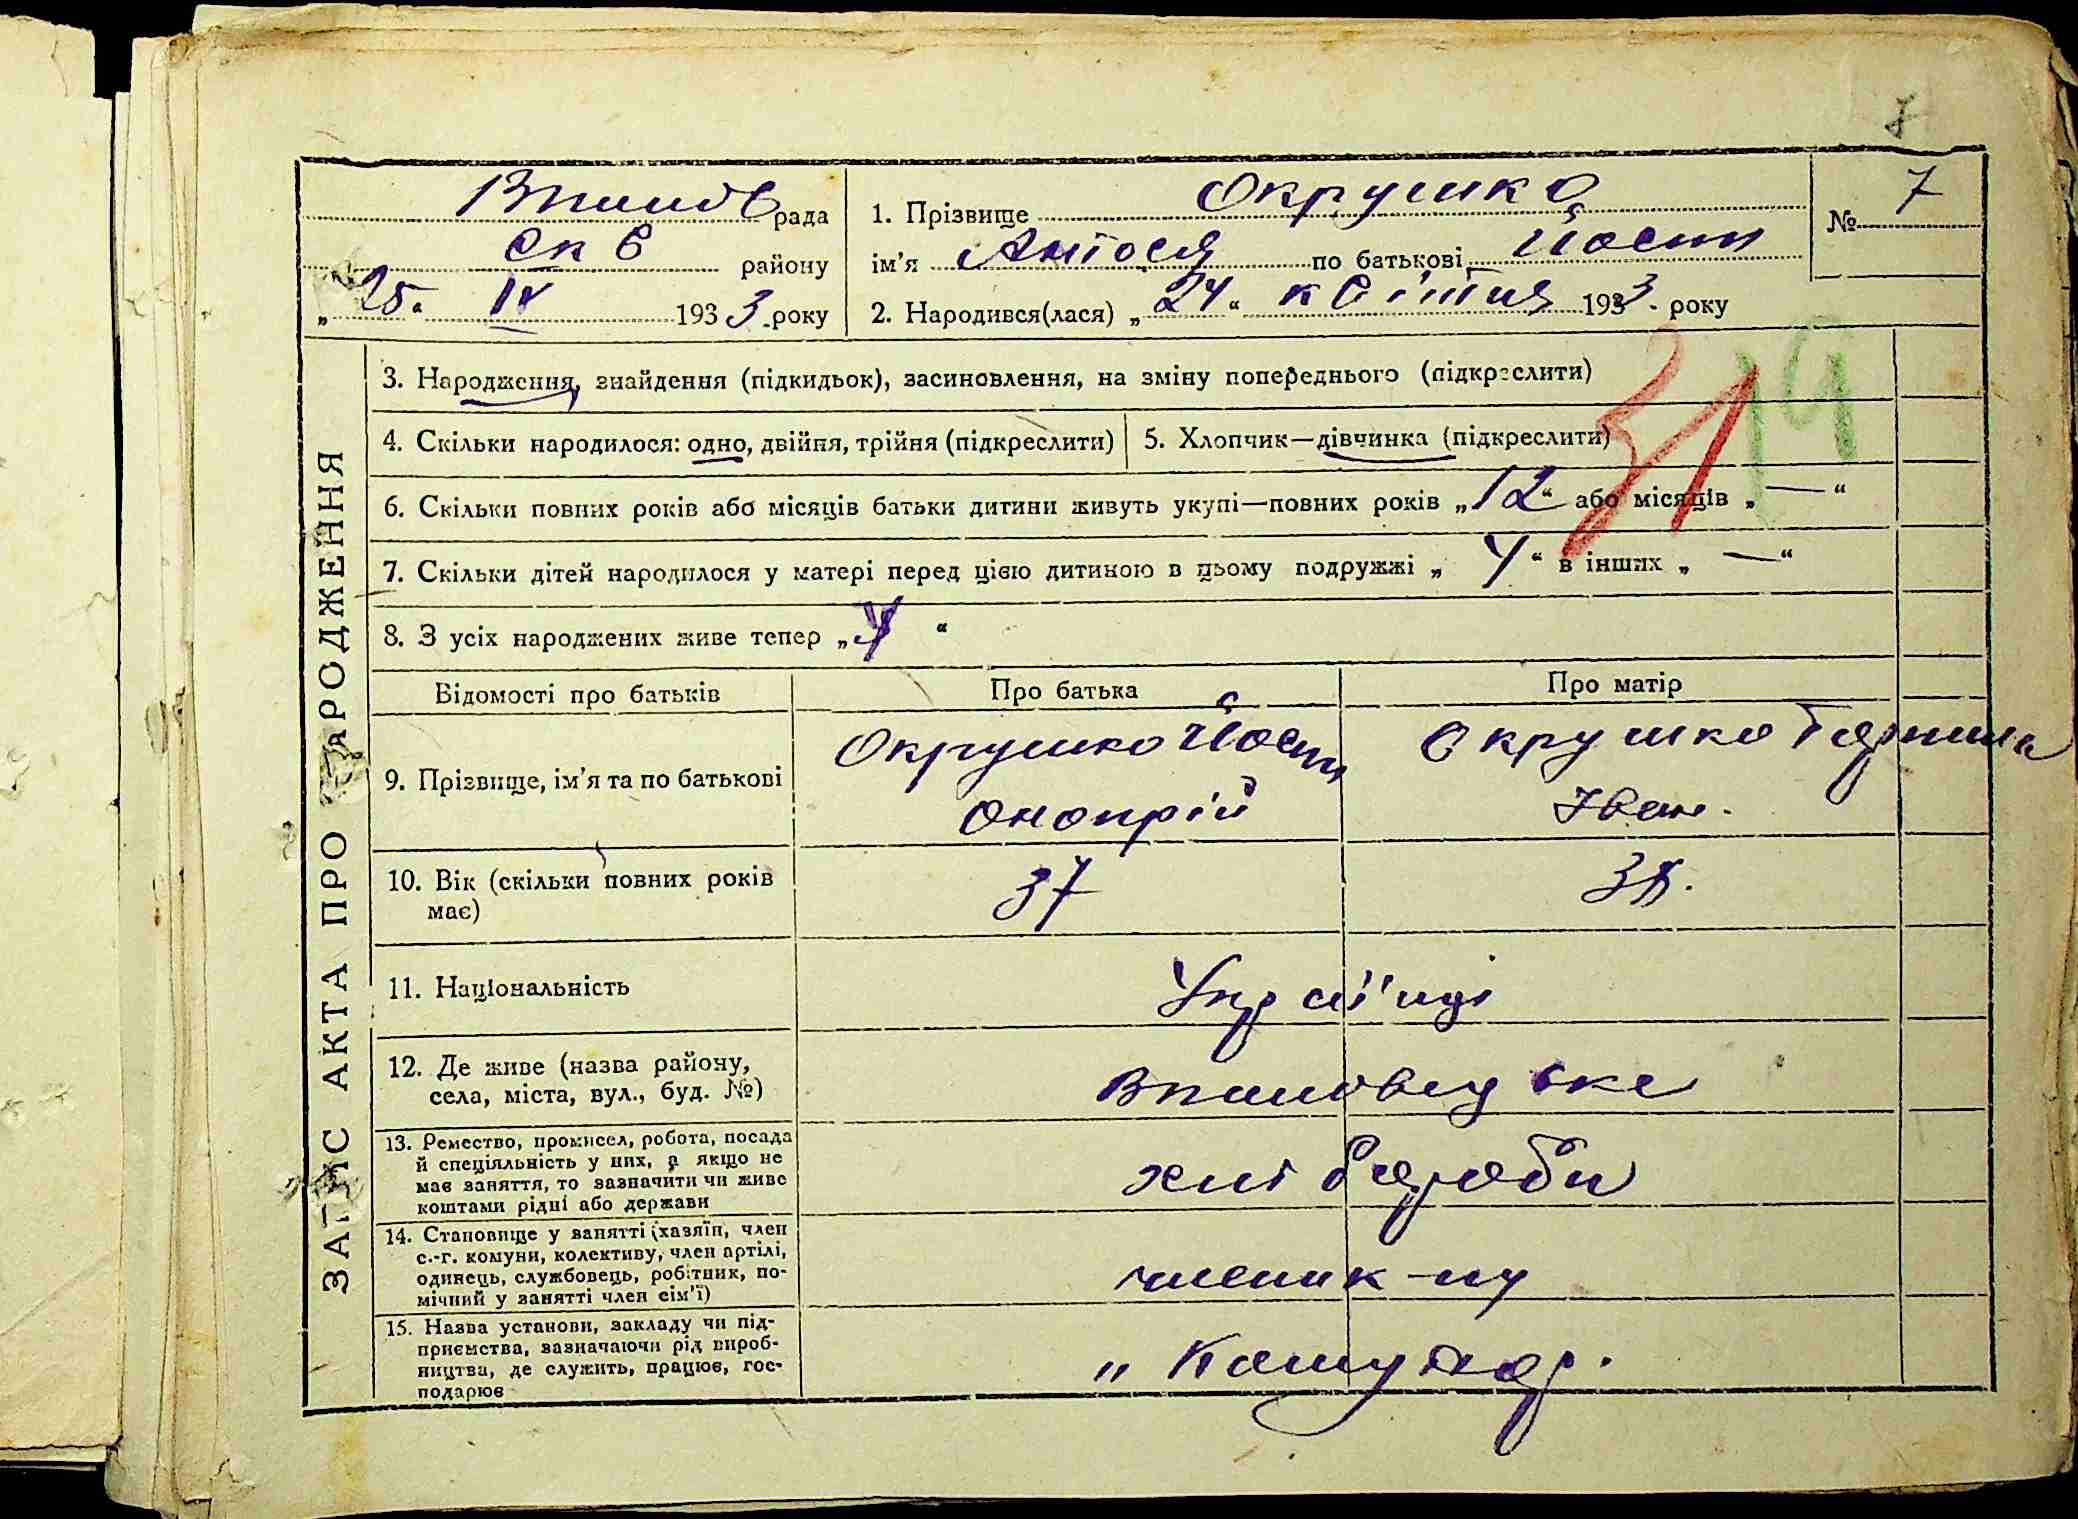 7
Впилов рада
Ск В району
„25“ IV 1933 року
1. Прізвище Окрушко
ім’я Антося по батькові Йосип
2. Народився(лася) „24“ квітня 1933 року
№ 7
ЗАПИС АКТА ПРО НАРОДЖЕННЯ
3. Народження, знайдення (підкидьок), засиновлення, на зміну попереднього (підкреслити)
31 19
4. Скільки народилося: одно, двійня, трійня (підкреслити)
5. Хлопчик—дівчинка (підкреслити)
6. Скільки повних років або місяців батьки дитини живуть укупі—повних років „12“ або місяців „—“
7. Скільки дітей народилося у матері перед цією дитиною в цьому подружжі „4“ в інших „—“
8. З усіх народжених живе тепер „ “
Відомості про батьків
Про батька
Про матір
9. Прізвище, ім’я та по батькові
Окрушко Йосип
Онопрій
Окрушко
Іван.
10. Вік (скільки повних років
має)
37
11. Національність
Украї́нці
12. Де живе (назва району,
села, міста, вул., буд. №)
13. Ремество, промисел, робота, посада
й спеціяльність у них, а якщо не
має заняття, то зазначити чи живе
коштами рідні або держави
хлібороби
14. Становище у занятті (хазяїн, член
с.-г. комуни, колективу, член артілі,
одинець, службовець, робітник, по-
мічний у занятті член сім’ї)
15. Назва установи, закладу чи під-
приємства, зазначаючи рід вироб-
ництва, де служить, працює, гос-
подарює